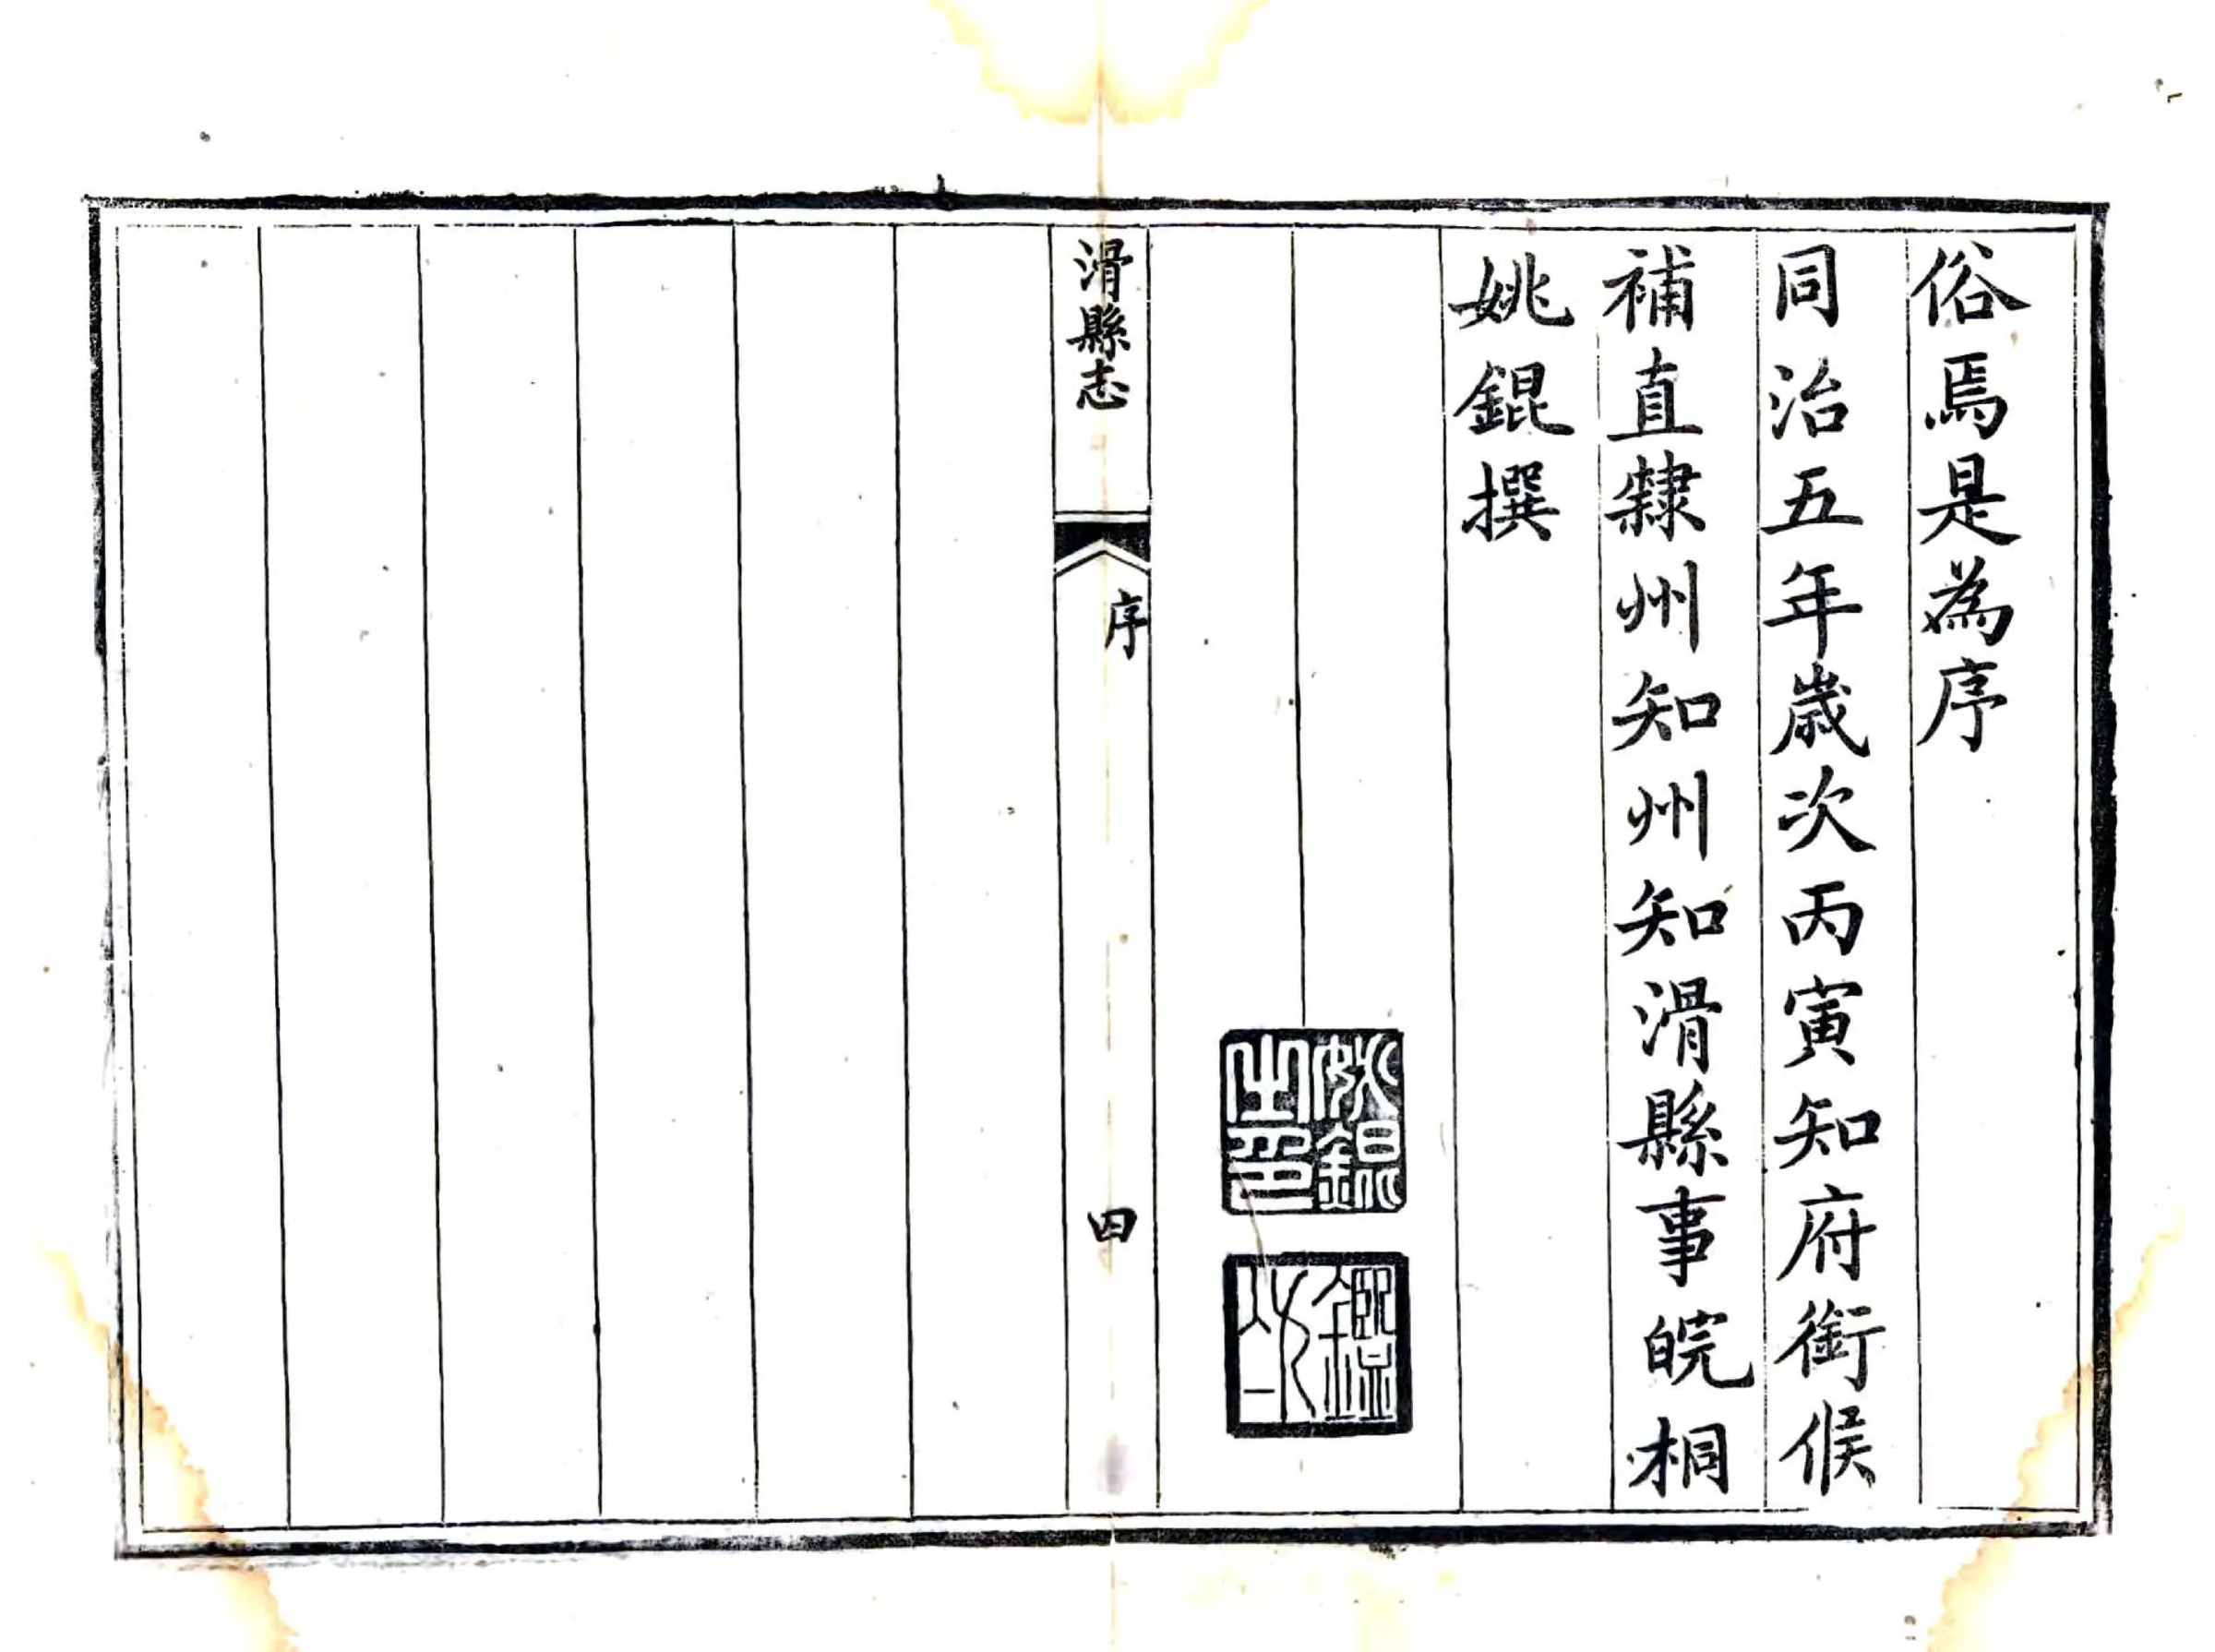 俗焉是為序
同治五年歲次丙寅知府銜候
補直隸州知州知滑縣事皖桐
姚錕撰
姚錕
之印
鑑
滑縣志
序
四